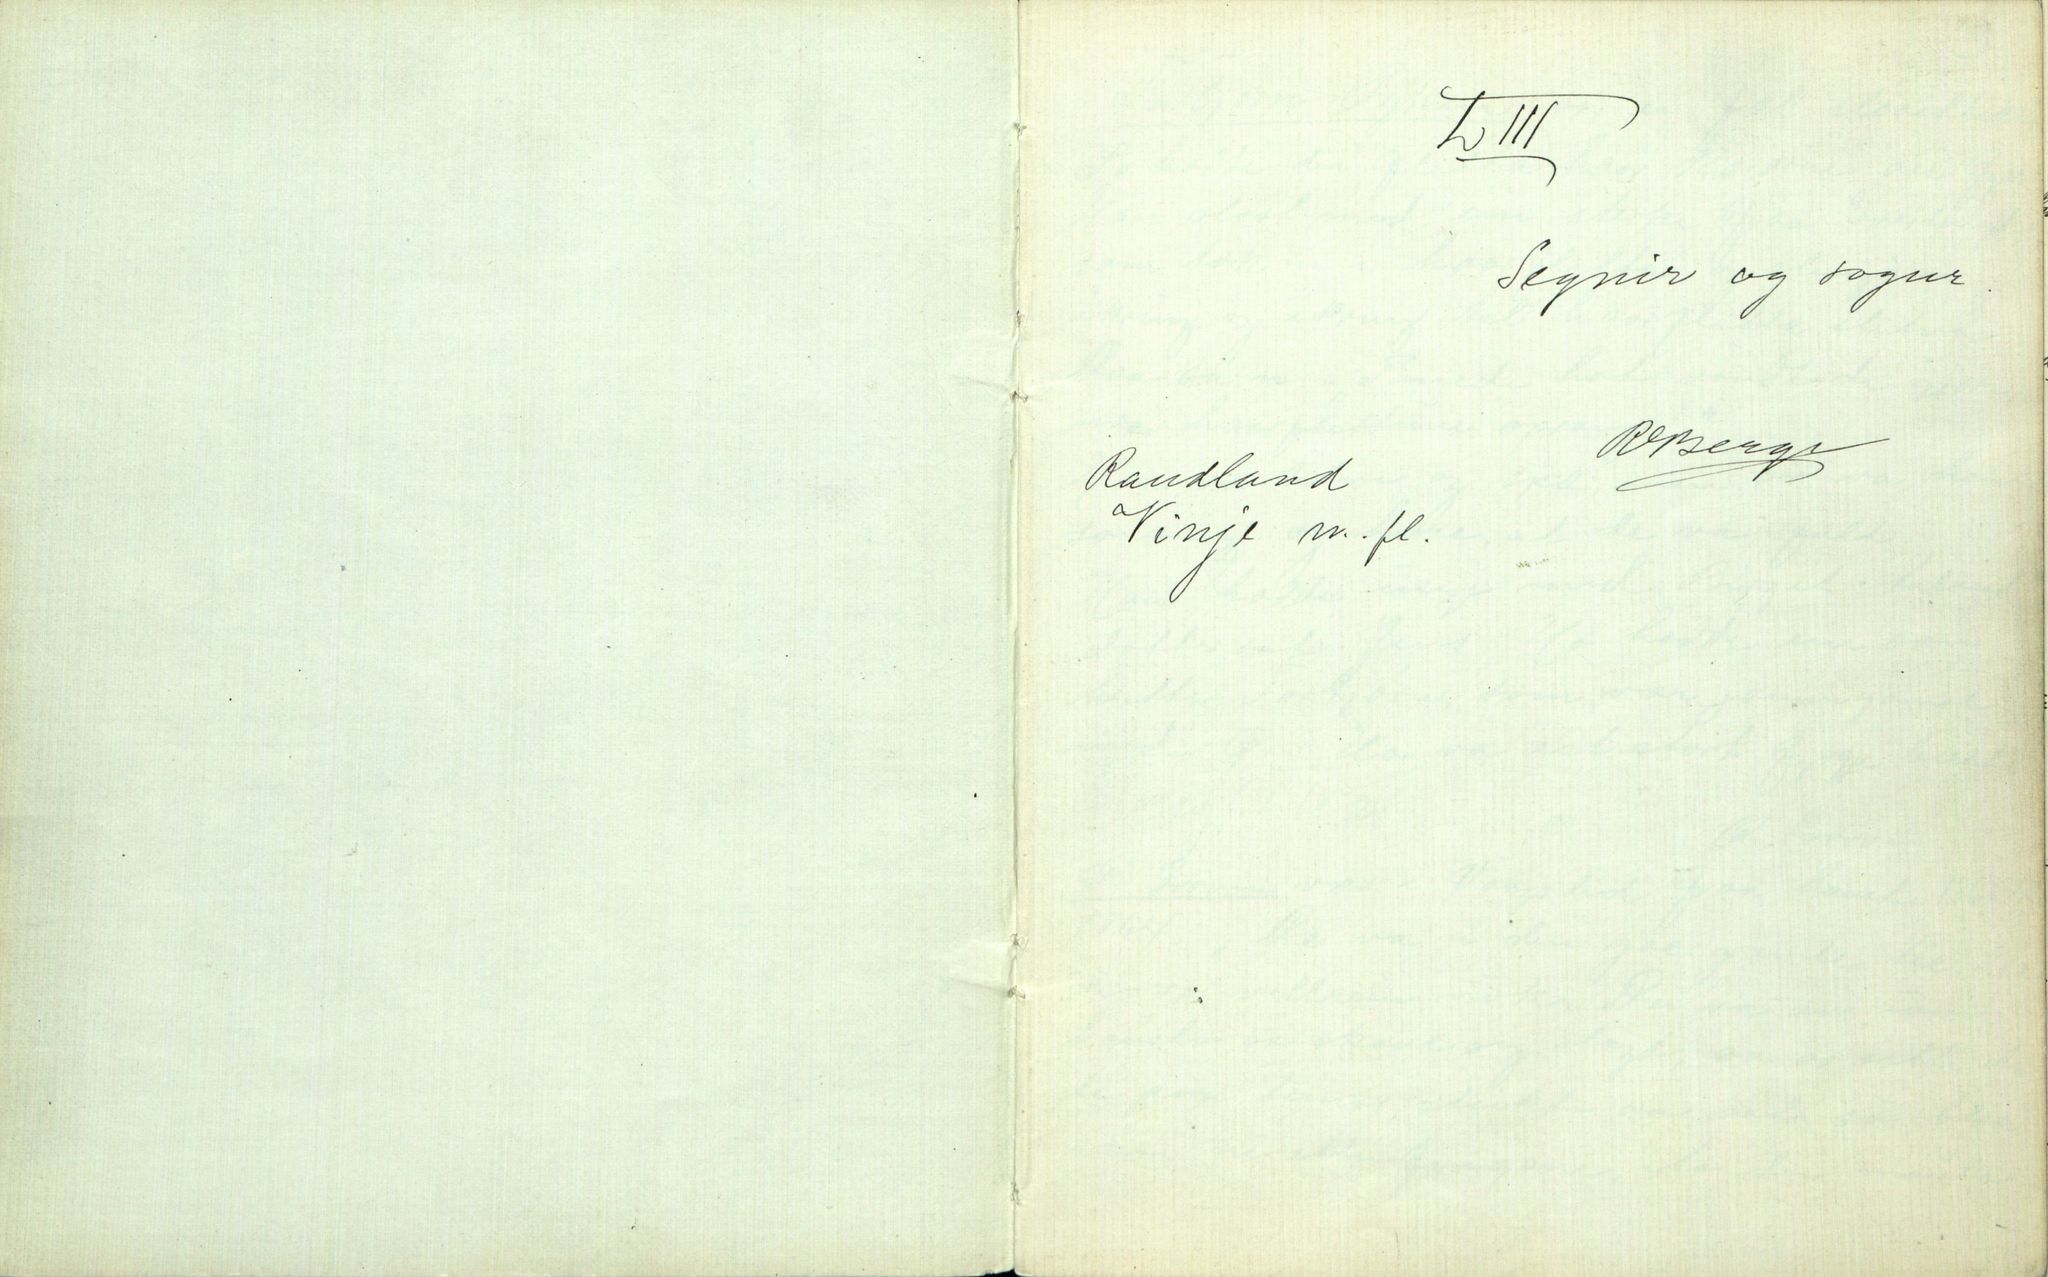 LIII
Segnir og sogur.
RBerge
Raudland
Vinje m. fl.